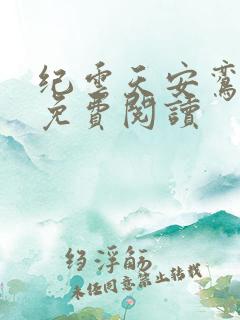 纪云天安鸾
免費閱讀
绉浮觞
未经同意禁止转载